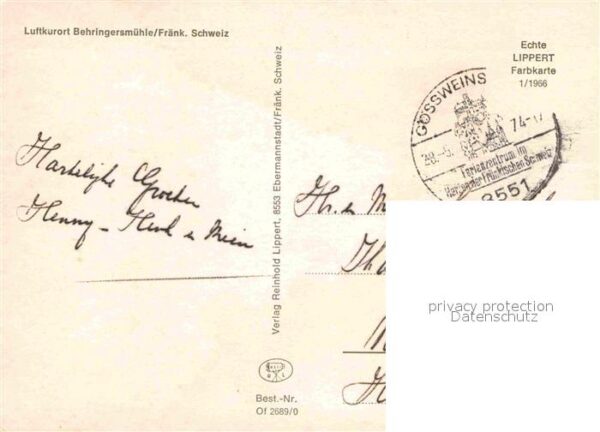 Luftkurort Behringersmühle/Fränk. Schweiz
Echte
LIPPERT
Farbkarte
1/1966
GÖSSWEINS
74-17
Ferienzentrum im
Herzen der Fränkischen Schweiz
8551
Hartelijke Groeten
Henny - Henk en Rien
Verlag Reinhold Lippert, 8553 Ebermannstadt/Fränk. Schweiz
privacy protection
Datenschutz
Best.-Nr.
Of 2689/0